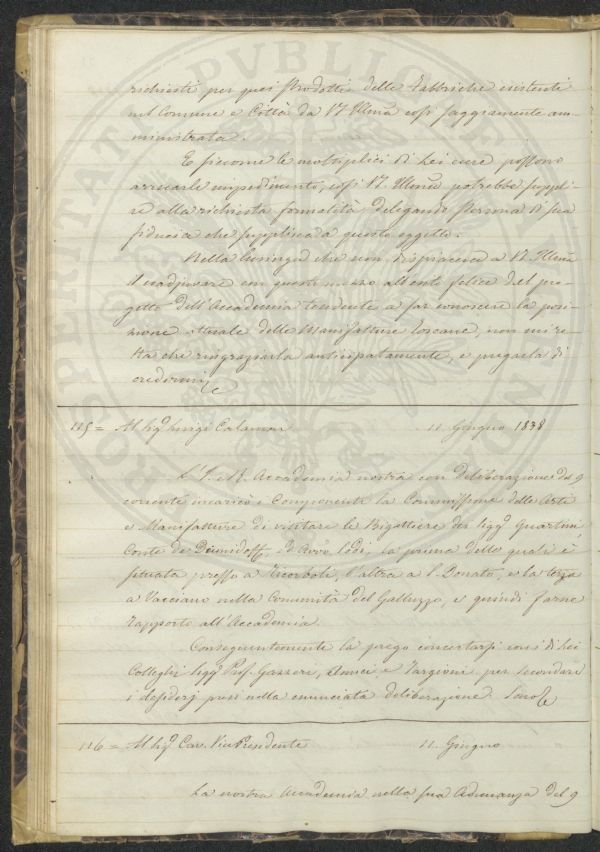 richiesti per quei Prodotti delle Fabbriche esistenti
nel Comune e Città da V. Illma così saggiamente am-
ministrata.
E siccome le moltiplici di Lei cure possono
arrecarle impedimento, così V. Illma potrebbe suppli-
re alla richiesta formalità, delegando Persona di sua
fiducia che supplisca a questo oggetto.
Nella lusinga che non dispiacerà a V. Illma
il coadjuvare con questo mezzo all'esito felice del pro-
getto dell'Accademia tendente a far conoscere la posi-
zione attuale delle Manifatture Toscane, non mi re-
sta che ringraziarla anticipatamente, e pregarla di
credermi
115 = Al Sigr Luigi Calamai 11 Giugno 1838
L'I. e R. Accademia nostra con deliberazione del 9
corrente incaricò i Componenti la Commissione delle Arti
e Manifatture di visitare le Bigattiere dei Sigg
Conte de Demidoff, ed Avvo Lodi, la prima delle quali è
situata presso a Ricorboli, l'altra a S. Donato, e la terza
a Vacciano nella Comunità del Galluzzo, e quindi farne
rapporto all'Accademia.
Conseguentemente la prego concertarsi con i di Lei
Colleghi Sigg Prof. Gazzeri, Amici e Targioni per secondare
i desiderj presi nella enunciata deliberazione. Sono
116 = Al Sigr Cav. Vice Presidente 11. Giugno
La nostra Accademia nella sua Adunanza del 9